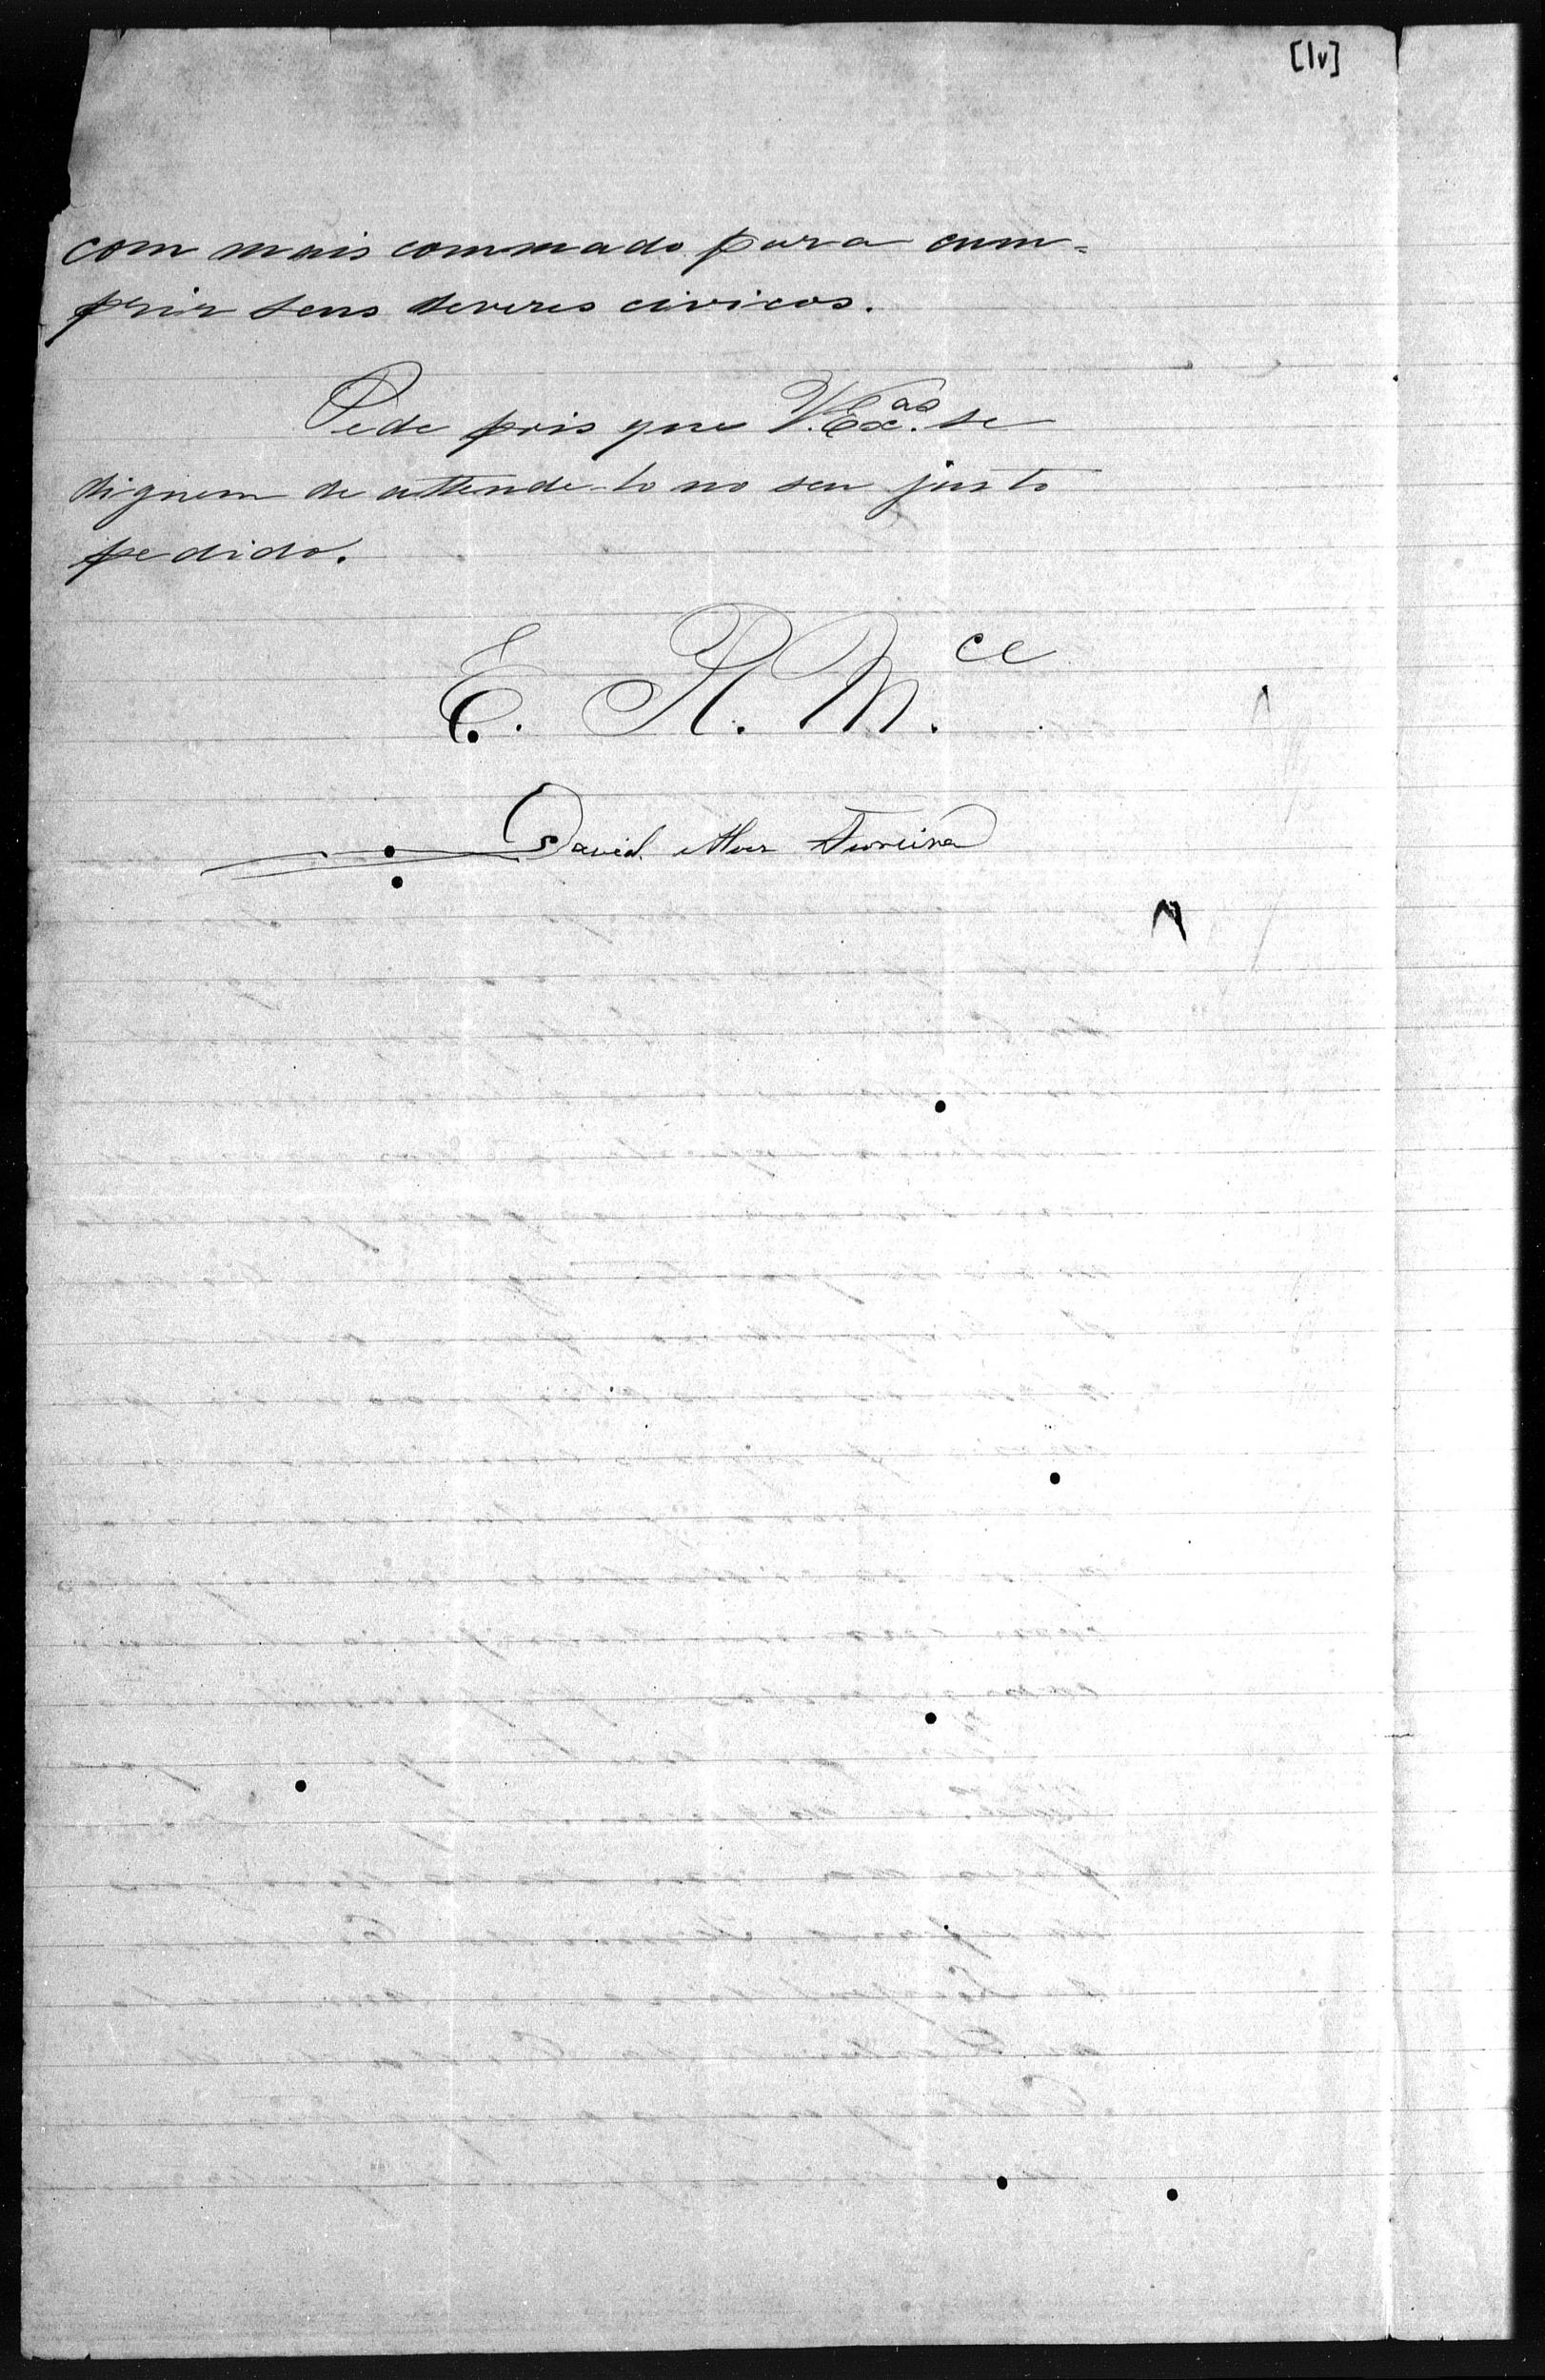 [1v]
com mais commado para cum-
prir seus deveres civicos.
Pede pois que V. Ex.as se
dignem de attende-lo no seu justo
pedido.
E. R. M.ce
David Alves Ferreira